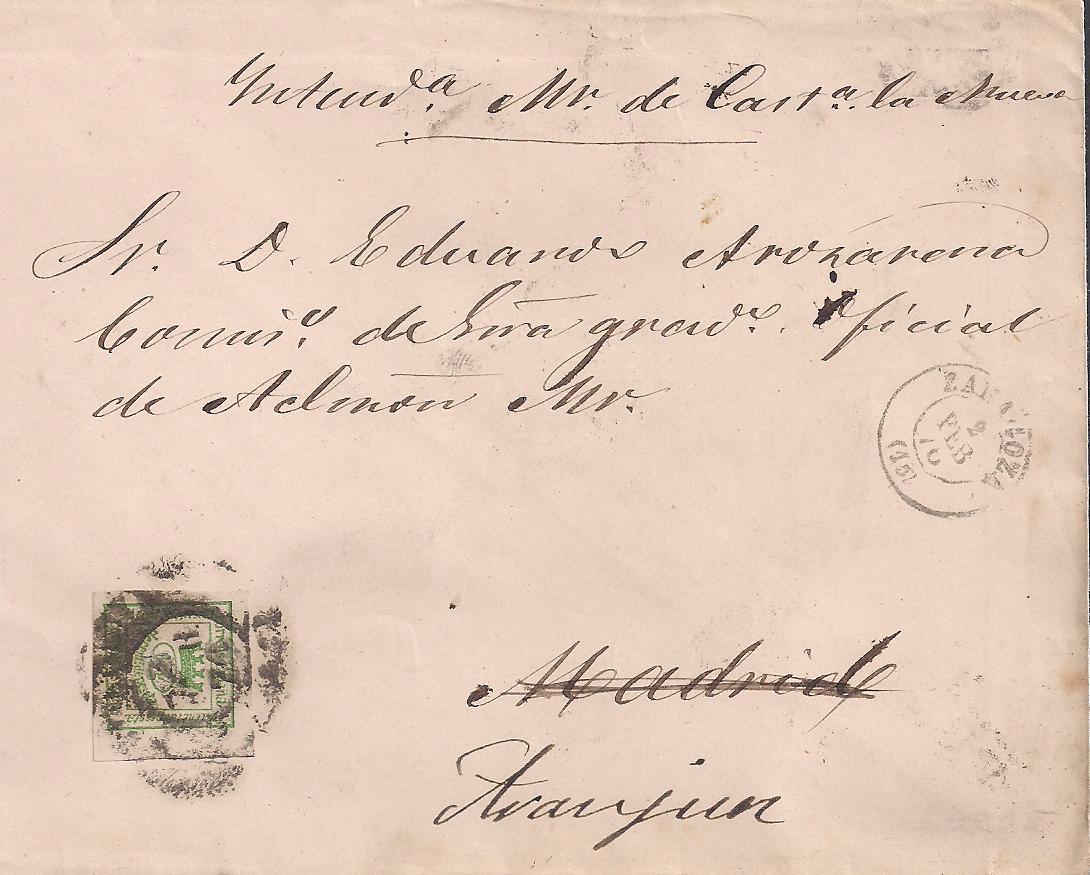 Intend.ª Mr. de Cast.ª la Nueva
Sr. D. Eduardo Arozarena
Comis.º de Grra grad.º Oficial
de Admon Mr.
ZARAGOZA
2
FEB
(16)
Madrid
Aranjuez